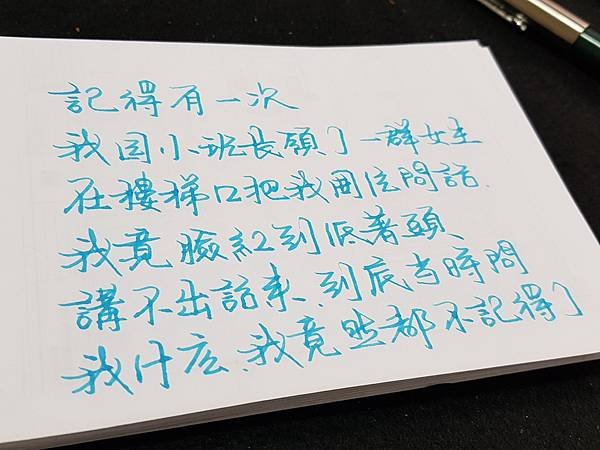 記得有一次
我国小班長領了一群女生
在樓梯口把我围住問話.
我竟臉紅到低著頭
講不出話來、到底当時問
我什広、我竟然都不記得了